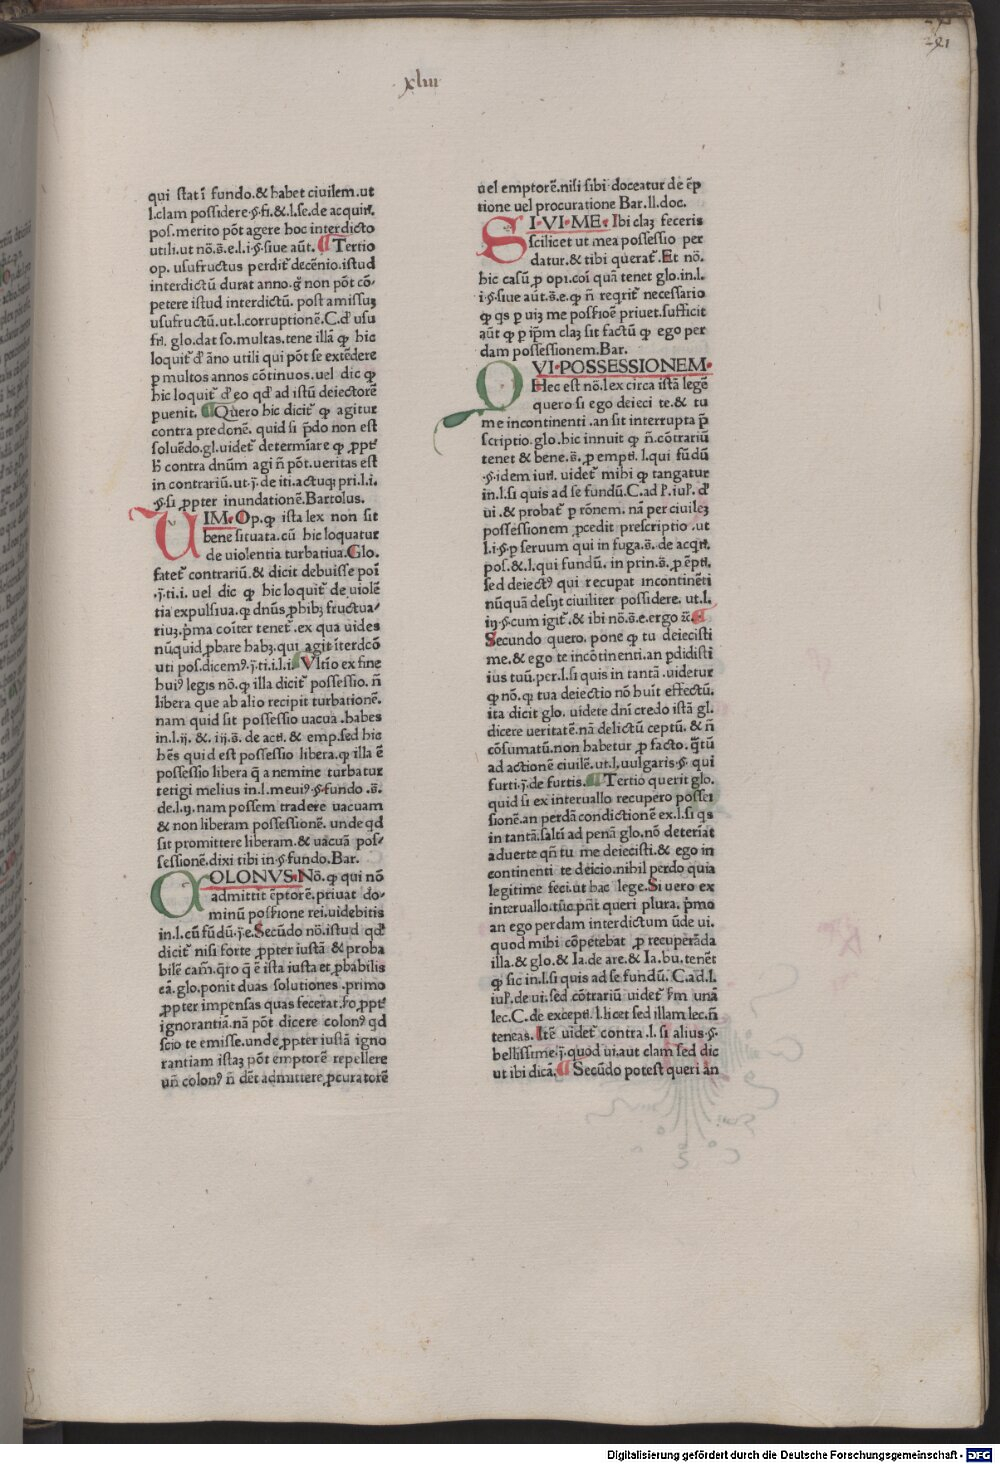 xliii
21
qui stat ĩ fundo.& habet ciuilem.ut
l.clam possidere.§.fi.& l.se.de acquiṝ.
pos.merito põt agere hoc interdicto
utili.ut nõ.s̃.e.l.i.§.siue aũt. ¶ Tertio
op. ususfructus perdit᷑ decẽnio.istud
interdictũ durat anno.g̃ non põt cõ-
petere istud interdictũ. post amissuʒ
usufructũ.ut.l.corruptionẽ.C.d᷑ usu
fṙi. glo.dat so.multas.tene illã ꝙ hic
loquit᷑ d᷑ ãno utili qui põt se extẽdere
ꝑ multos annos cõtinuos.uel dic ꝙ
hic loquit᷑ d᷑ eo qd᷑ ad istũ deiectorẽ
puenit. ¶ Quero hic dicit᷑ ꝙ agitur
contra predonẽ. quid si p̃do non est
soluẽdo.gl.uidet᷑ determĩare ꝙ ꝓpt᷑
h̃ contra dnũm agi ñ põt.ueritas est
in contrariũ.ut.j̃.de iti.actuqʒ pri.l.i.
§.si ꝓpter inundationẽ.Bartolus.
UIM. Op.ꝙ ista lex non sit
bene situata.cũ hic loquatur
de uiolentia turbatiua.Glo.
fatet᷑ contrariũ.& dicit debuisse poĩ
.j̃.ti.i. uel dic ꝙ hic loquit᷑ de uiolẽ
tia expulsiua.ꝙ dnũs ꝓhibʒ fructua-
riuʒ.p̃ma coĩter tenet᷑.ex qua uides
nũquid ꝓbare habʒ.qui agit ĩterdcõ
uti pos.dicemꝰ.j̃.ti.i.l.i. ¶ Vltĩo ex fine
huiꝰ legis nõ.ꝙ illa dicit᷑ possessio. ñ
libera que ab alio recipit turbationẽ.
nam quid sit possessio uacua .habes
in.l.ij. &. iij.s̃. de acti. & emp.sed hic
hẽs quid est possessio libera.ꝙ illa ẽ
possessio libera q̃ a nemine turbatur
tetigi melius in.l.meuiꝰ.§.fundo .s̃.
de.l.ij. nam possem tradere uacuam
& non liberam possessionẽ. unde qd
sit promittere liberam.& uacuã pos-
sessionẽ.dixi tibi in.§.fundo.Bar.
COLONVS. Nõ.ꝙ qui nõ
admittit ẽptorẽ.priuat do-
minũ possione rei.uidebitis
in.l.cũ fũdũ.j̃.e. Secũdo nõ.istud qd᷑
dicit᷑ nisi forte ꝓpter iustã & proba
bilẽ cam̃.q̃ro q̃ ẽ ista iusta et ꝓbabilis
cã.glo.ponit duas solutiones .primo
ꝓpter impensas quas fecerat.ẜo ꝓpt᷑
ignorantiã.nã põt dicere colonꝰ qd
scio te emisse.unde ꝓpter iustã igno
rantiam istaʒ põt emptorẽ repellere
uñ colonꝰ ñ dẽt admittere ꝓcuratorẽ
uel emptorẽ.nisi sibi doceatur de ẽp
tione uel procuratione Bar.ll.doc.
SI·VI·ME· Ibi claʒ feceris
scilicet ut mea possessio per
datur.& tibi querat᷑. Et nõ.
hic casũ ꝓ opi.coĩ quã tenet glo.in.l.
i.§.siue aũt.s̃.e.ꝙ ñ reqrit᷑ necessario
ꝙ qs ꝑ uiʒ me possiõe priuet.sufficit
aũt ꝙ ꝑ ip̃m claʒ sit factũ ꝙ ego per
dam possessionem.Bar.
QVI·POSSESSIONEM·
Hec est nõ.lex circa istã legẽ
quero si ego deieci te.& tu
me incontinenti .an sit interrupta p̃
scriptio.glo.hic innuit ꝙ ñ.cõtrariũ
tenet & bene.s̃. ꝓ empti. l.qui fũdũ
.§.idem iuri. uidet᷑ mihi ꝙ tangatur
in.l.si quis ad se fundũ.C.ad l᷑. iul᷑. d᷑
ui .& probat᷑ ꝑ rõnem. nã per ciuileʒ
possessionem ꝓcedit prescriptio .ut
l.i.§.ꝑ seruum qui in fuga.s̃. de acqṝ.
pos.& l.qui fundũ. in prin.s̃. ꝓ ẽpti.
sed deiectꝰ qui recupat incontinẽti
nũquã desijt ciuiliter possidere. ut.l.
iij.§.cum igit᷑.& ibi nõ.s̃.e.ergo ⁊c̃. ¶
Secundo quero. pone ꝙ tu deiecisti
me.& ego te incõtinenti.an ꝑdidisti
ius tuũ.per.l.si quis in tantã .uidetur
ꝙ nõ.ꝙ tua deiectio nõ huit effectũ.
ita dicit glo. uidete dnĩ credo istã gl.
dicere ueritatẽ.nã delictũ ceptũ. & ñ
cõsumatũ.non habetur ꝓ facto. q̃tũ
ad actionẽ ciuilẽ.ut.l,uulgaris.§. qui
furti.j̃.de furtis. ¶ Tertio querit glo.
quid si ex interuallo recupero posses
sionẽ.an perdã condictionẽ ex.l.si qs
in tantã.saltĩ ad penã glo.nõ determĩat
aduerte qñ tu me deiecisti.& ego in
continenti te deicio.nihil perdo quia
legitime feci.ut hac lege.Si uero ex
interuallo.tũc pñt queri plura. p̃mo
an ego perdam interdictum ũde ui.
quod mihi cõpetebat ꝓ recuperãda
illa.& glo.& Ia.de are.& Ia.bu.tenẽt
ꝙ sic in.l.si quis ad se fundũ. C.ad.l.
iul᷑.de ui.sed cõtrariũ uidet᷑ ẜm unã
lec.C.de excepti. l.licet sed illam lec.ñ
teneas. Itẽ uidet᷑ contra .l. si alius .§.
bellissime.j̃.quod ui.aut clam sed dic
ut ibi dicã. ¶ Secũdo potest queri an
Digitalisierung gefördert durch die Deutsche Forschungsgemeinschaft - DFG